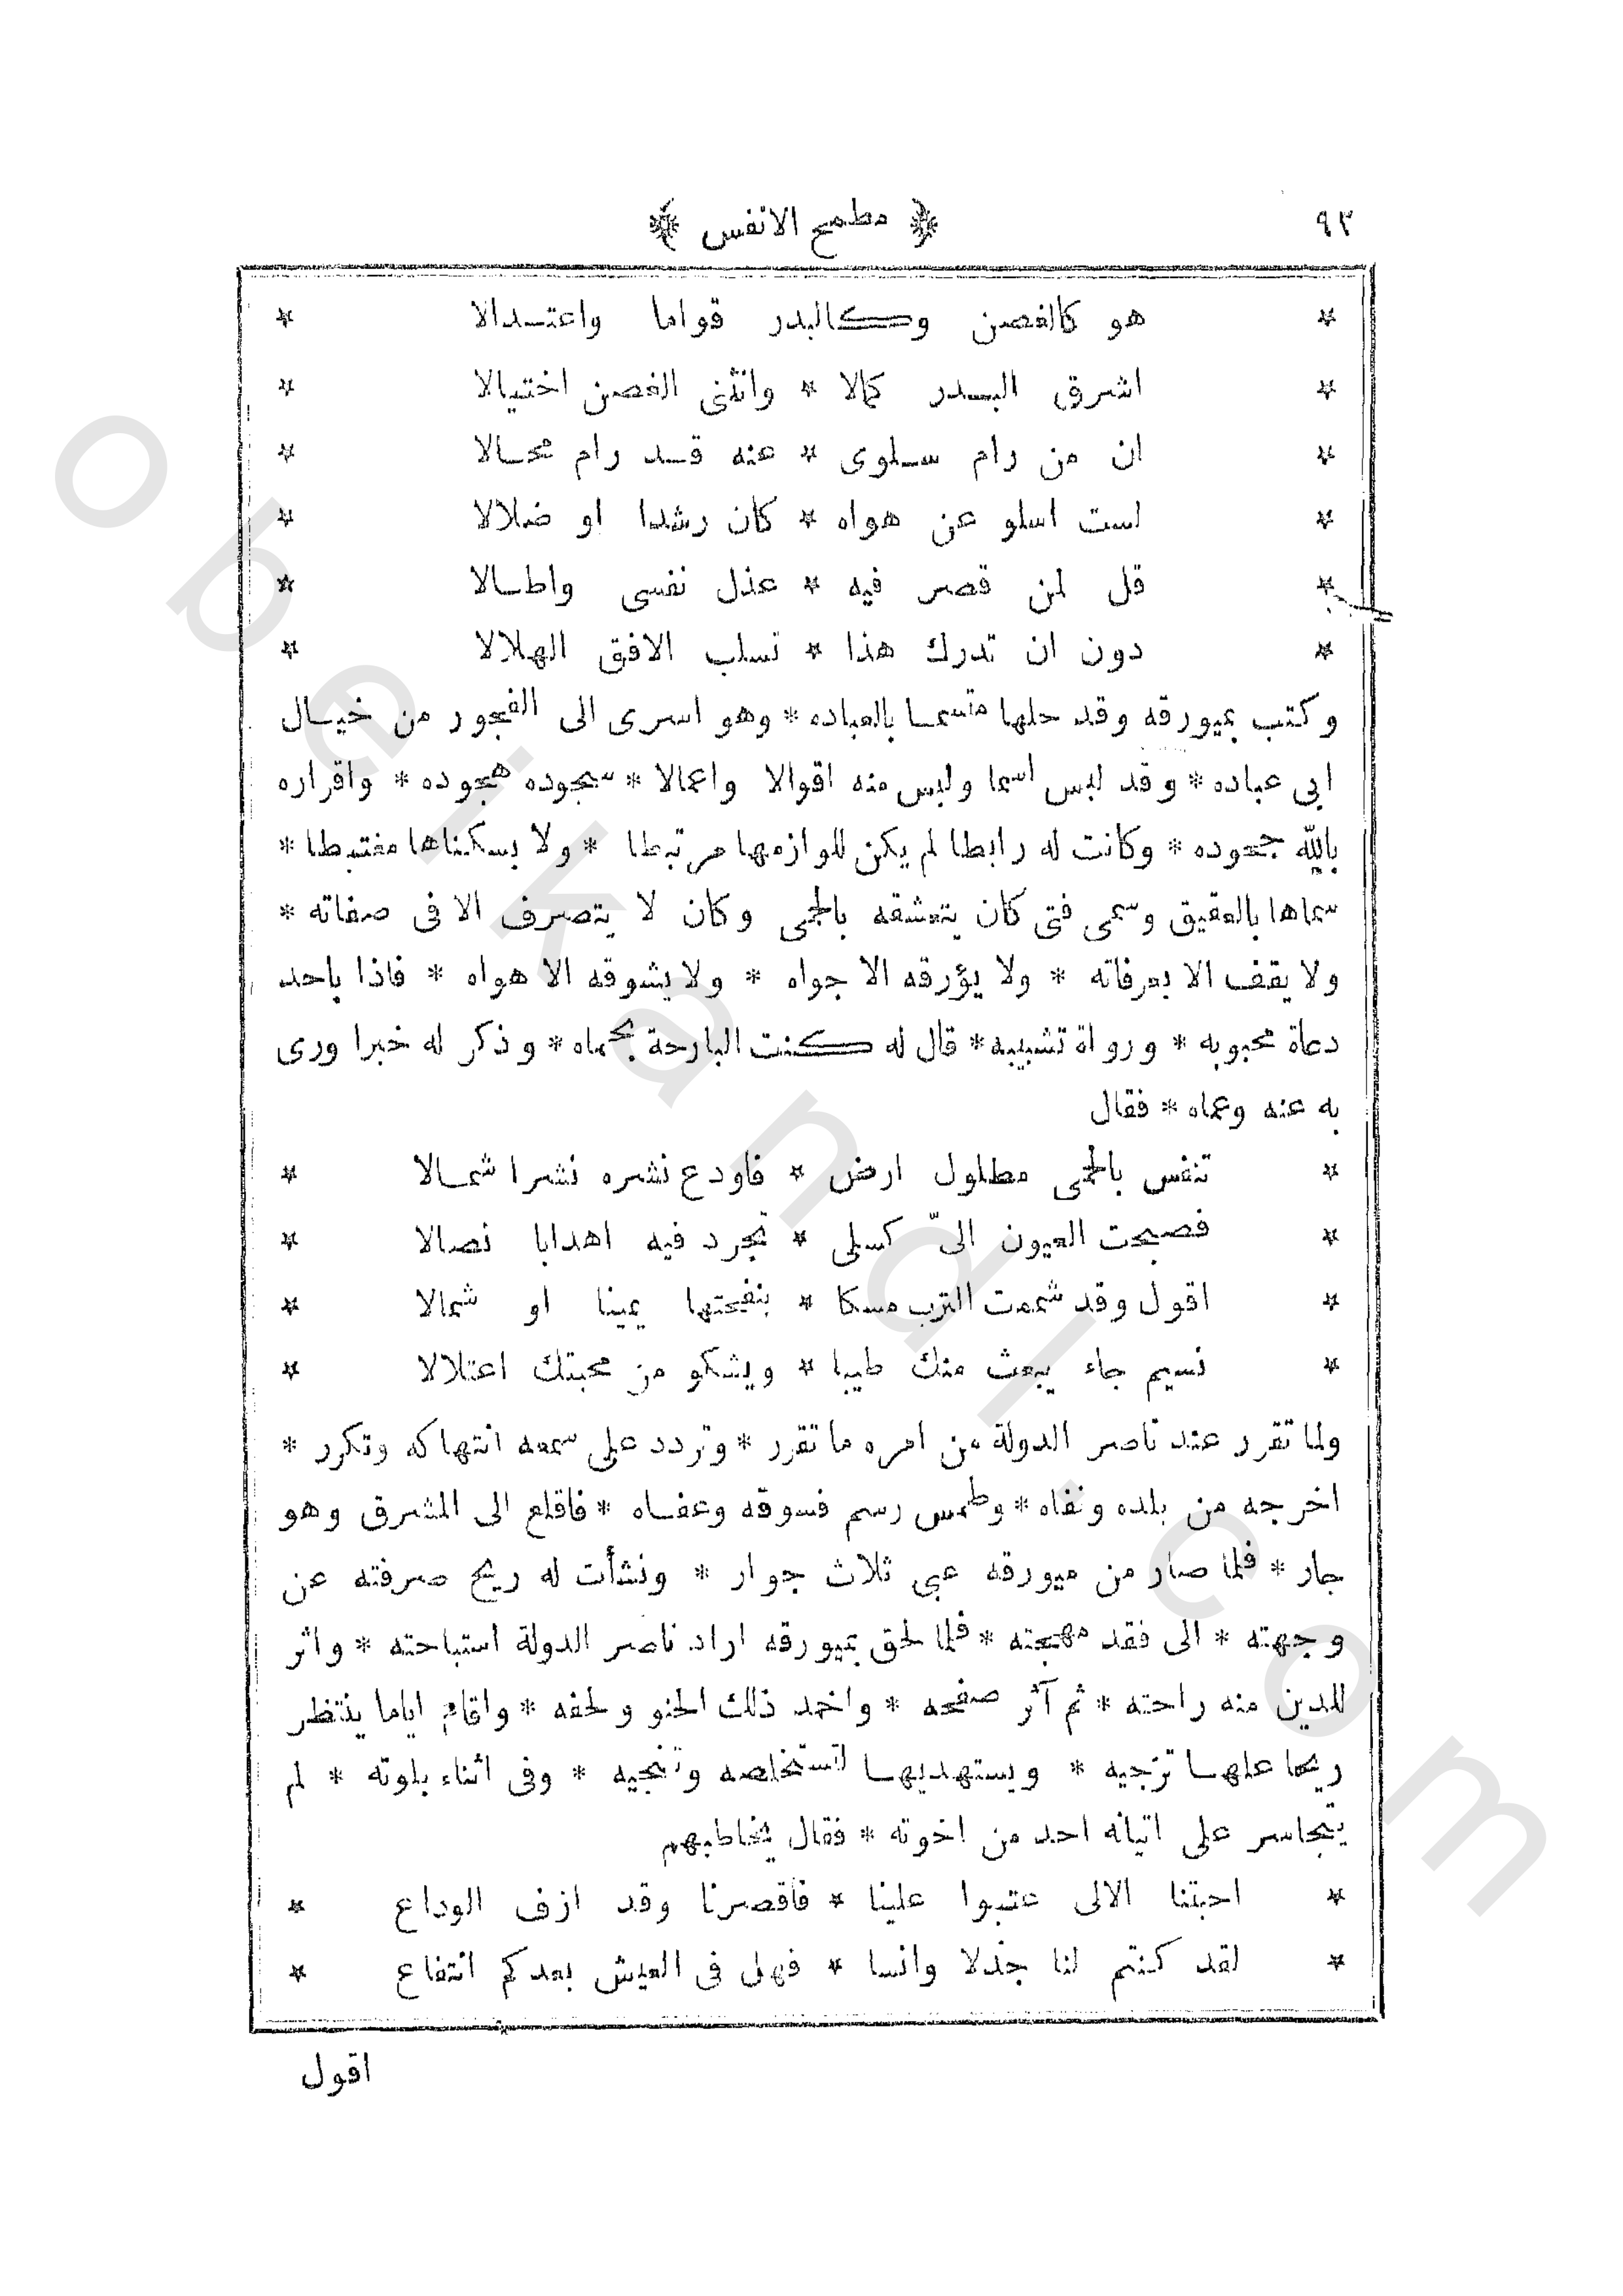 ٩٢ ﴿ مطمح الانفس ﴾
* هو كالغصن وكالبدر قواما واعتدالا *
* اشرق البدر كمالا * وانثنى الغصن اختيالا *
* ان من رام سلوى * عنه قد رام محالا *
* لست اسلو عن هواه * كان رشدا او ضلالا *
* قل لمن قصر فيه * عذل نفسى واطالا *
* دون ان تدرك هذا * تسلب الافق الهلالا *
وكتب بميورقه وقد حلها متسما بالعباده * وهو اسرى الى الفجور من خيال
ابى عباده * وقد لبس اسما ولبس منه اقوالا واعمالا * سجوده هجوده * واقراره
بالله جحوده * وكانت له رابطا لم يكن للوازمها مرتبطا * ولا بسكناها مغتبطا *
سماها بالعقيق وسمى فتى كان يتعشقه بالحمى وكان لا يتصرف الا فى صفاته *
ولا يقف الا بعرفاته * ولا يؤرقه الا جواه * ولا يشوقه الا هواه * فاذا باحد
دعاة محبوبه * ورواة تشبيبه * قال له كنت البارحة بحماه * وذكر له خبرا ورى
به عنه وعماه * فقال
* تنفس بالحمى مطلول ارض * فاودع نشره نشرا شمالا *
* فصبحت العيون الىّ كسلى * تجرد فيه اهدابا نصالا *
* اقول وقد شممت الترب مسكا * بنفحتها يمينا او شمالا *
* نسيم جاء يبعث منك طيبا * ويشكو من محبتك اعتلالا *
ولما تقرر عند ناصر الدولة من امره ما تقرر * وتردد على سمعه انتهاكه وتكرر *
اخرجه من بلده ونفاه * وطمس رسم فسوقه وعفاه * فاقلع الى المشرق وهو
جار * فلما صار من ميورقه على ثلاث جوار * ونشأت له ريح صرفته عن
وجهته * الى فقد مهجته * فلما لحق بميورقه اراد ناصر الدولة استباحته * واثر
للدين منه راحته * ثم آثر صفحه * واخمد ذلك الحنو ولحفه * واقام اياما ينتظر
ريحا علها تزجيه * ويستهديها لتستخلصه وتنجيه * وفى اثناء بلوته * لم
يتجاسر على اتيانه احد من اخوته * فقال يخاطبهم
* احبتنا الالى عتبوا علينا * فاقصرنا وقد ازف الوداع *
* لقد كنتم لنا جذلا وانسا * فهل فى العيش بعدكم انتفاع *
اقول
obeikandl.com